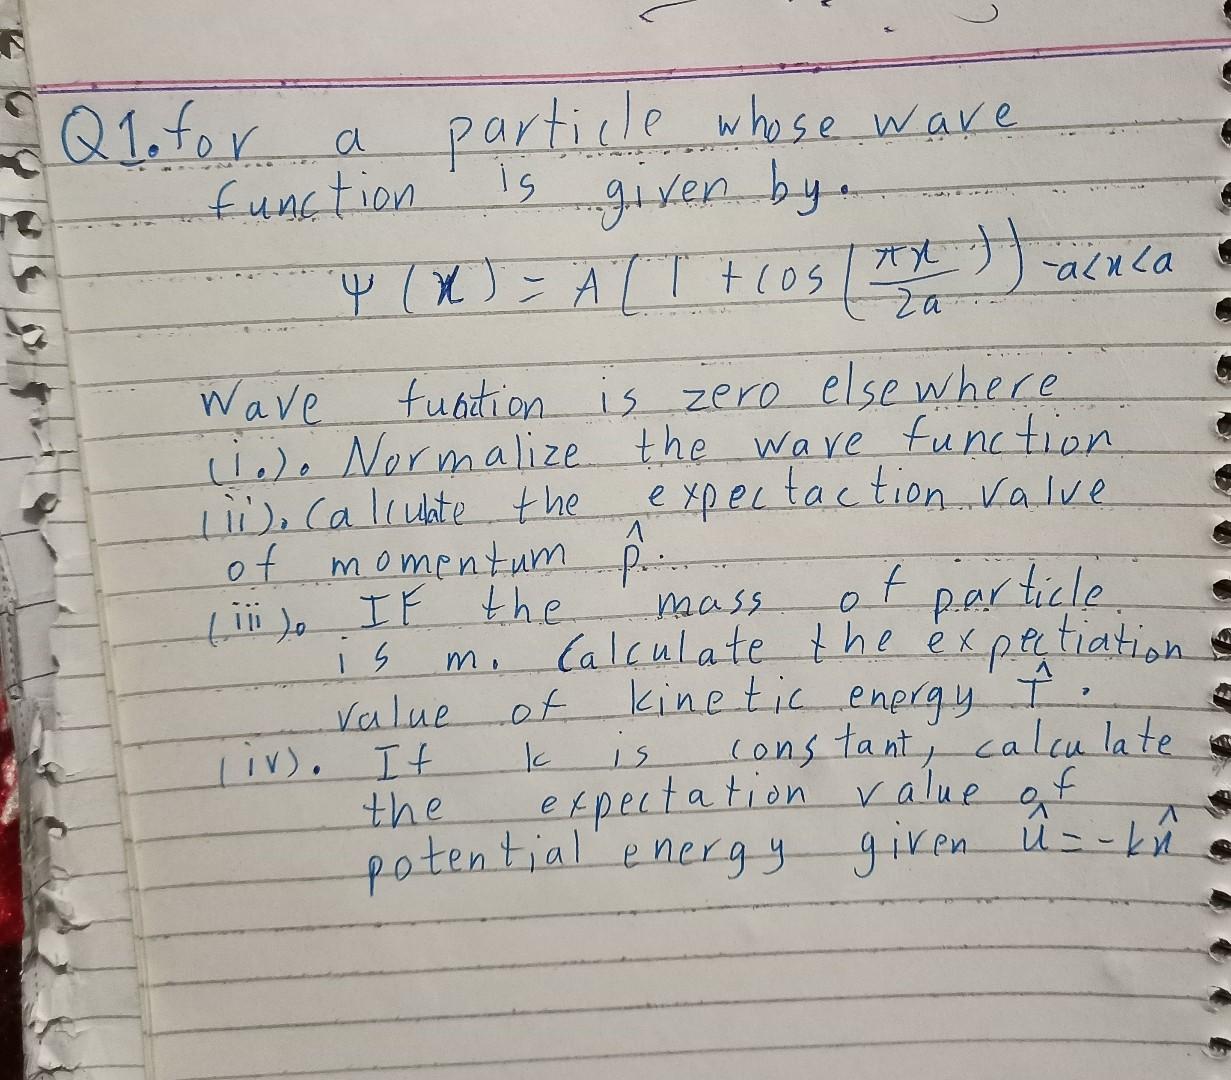 Q1. for a particle whose wave
function is given by.
Ψ(x) = A(1 + cos(πx/2a)) -a<x<a
Wave fuction is zero elsewhere
(i.). Normalize the wave function
(ii). Calculate the expectaction value
of momentum p̂.
(iii). IF the mass of particle
is m. Calculate the expectiation
value of kinetic energy T̂.
(iv). If k is constant, calculate
the expectation value of
potential energy given û = -kx̂